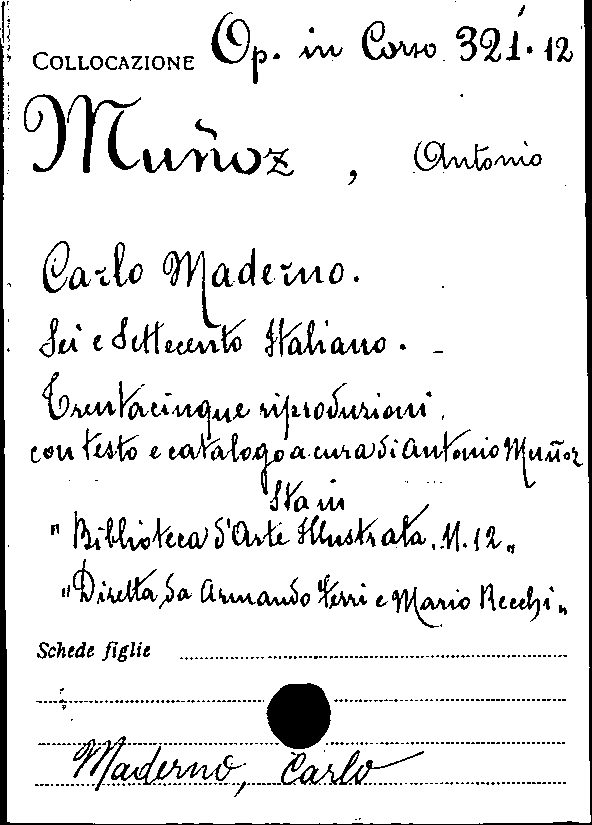 COLLOCAZIONE Op. in Corso 321.12
Muñoz, Antonio
Carlo Maderno.
Sei e Settecento Italiano. -
Trentacinque riproduzioni,
con testo e catalogo a cura di Antonio Muñoz
Sta in
"Biblioteca d'Arte Illustrata. N. 12"
"Diretta da Armando Ferri e Mario Recchi"
Schede figlie
Maderno, Carlo